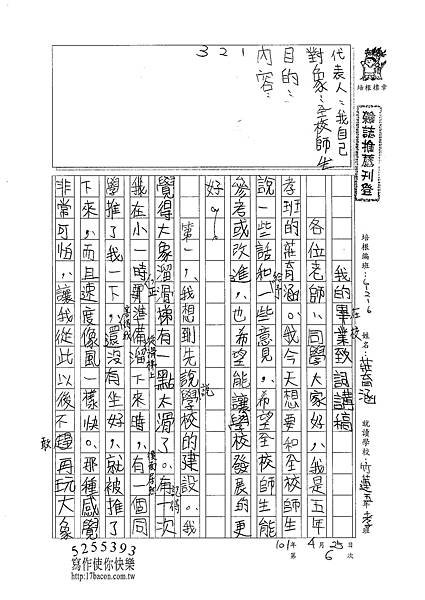 培根標章
雜誌推薦刊登
代表人：我自己
對象：全校師生
目的：
內容：
1
2
3
培根編班：
姓名：
就讀學校：
101年 4月 25日
第 6 次
我的畢業致詞講稿
在校
各位老師、同學大家好，我是五年
孝班的莊育涵。我今天想要和全校師生
說一些話和一些意見，希望全校師生能
給予
參考或改進，也希望能讓學校發展的更
好。
第一，我想到先說學校的建設。我
說
覺得大象溜滑梯有一點太滑了。有一次
記得
我在小一時準備溜下來時，有一個同
學推了我一下，還沒有坐好，就被推了
下來，而且速度像風一樣快。那種感覺
非常可怕，讓我從此以後不再玩大象
敢
5255393
寫作使你快樂
http://17bacon.com.tw